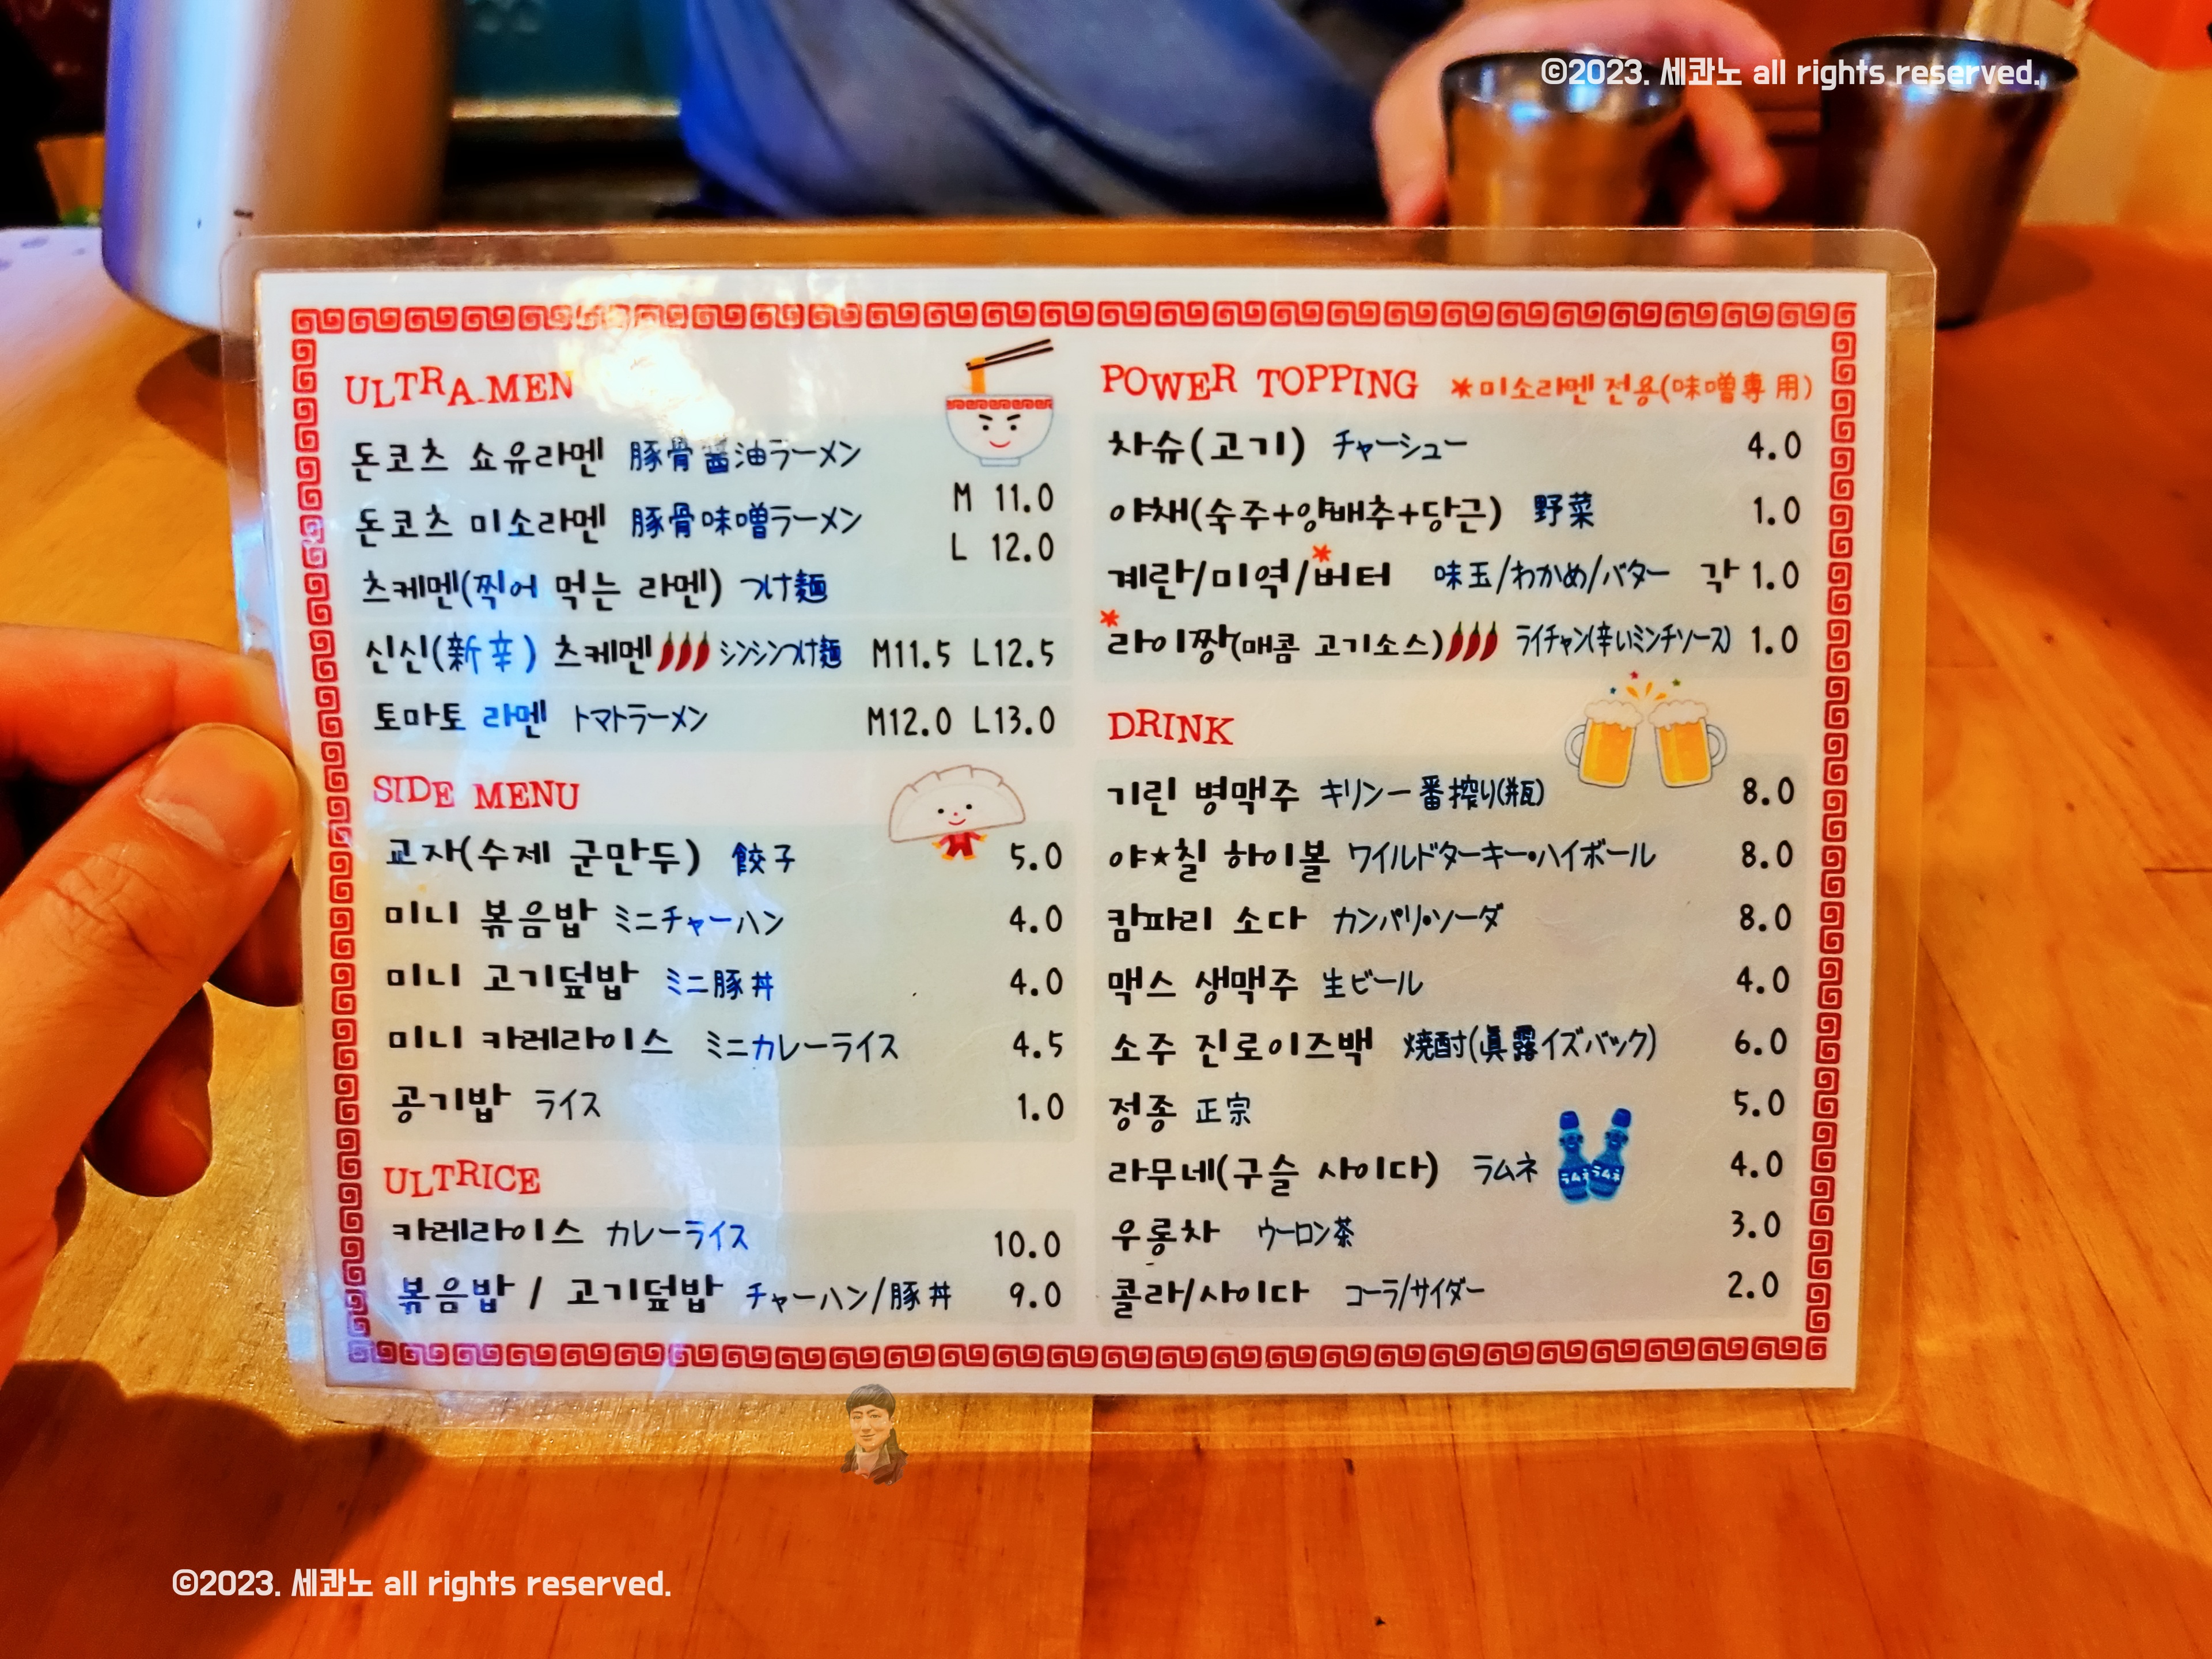 ©2023. 세콴노 all rights reserved.
ULTRA-MEN
돈코츠 쇼유라멘 豚骨醤油ラーメン
돈코츠 미소라멘 豚骨味噌ラーメン
M 11.0
L 12.0
츠케멘(찍어 먹는 라멘) つけ麺
신신(新辛) 츠케멘🌶🌶🌶 シンシンつけ麺 M11.5 L12.5
토마토 라멘 トマトラーメン M12.0 L13.0
SIDE MENU
교자(수제 군만두) 餃子 5.0
미니 볶음밥 ミニチャーハン 4.0
미니 고기덮밥 ミニ豚丼 4.0
미니 카레라이스 ミニカレーライス 4.5
공기밥 ライス 1.0
ULTRICE
카레라이스 カレーライス 10.0
볶음밥 / 고기덮밥 チャーハン/豚丼 9.0
POWER TOPPING *미소라멘 전용(味噌専用)
차슈(고기) チャーシュー 4.0
야채(숙주+양배추+당근) 野菜 1.0
계란/미역/*버터 味玉/わかめ/バター 각 1.0
*라이짱(매콤 고기소스)🌶🌶🌶 ライチャン(辛いミンチソース) 1.0
DRINK
기린 병맥주 キリン一番搾り(瓶) 8.0
야★칠 하이볼 ワイルドターキー•ハイボール 8.0
캄파리 소다 カンパリ•ソーダ 8.0
맥스 생맥주 生ビール 4.0
소주 진로이즈백 焼酎(眞露イズバック) 6.0
정종 正宗 5.0
라무네(구슬 사이다) ラムネ 4.0
ラムネ ラムネ
우롱차 ウーロン茶 3.0
콜라/사이다 コーラ/サイダー 2.0
©2023. 세콴노 all rights reserved.